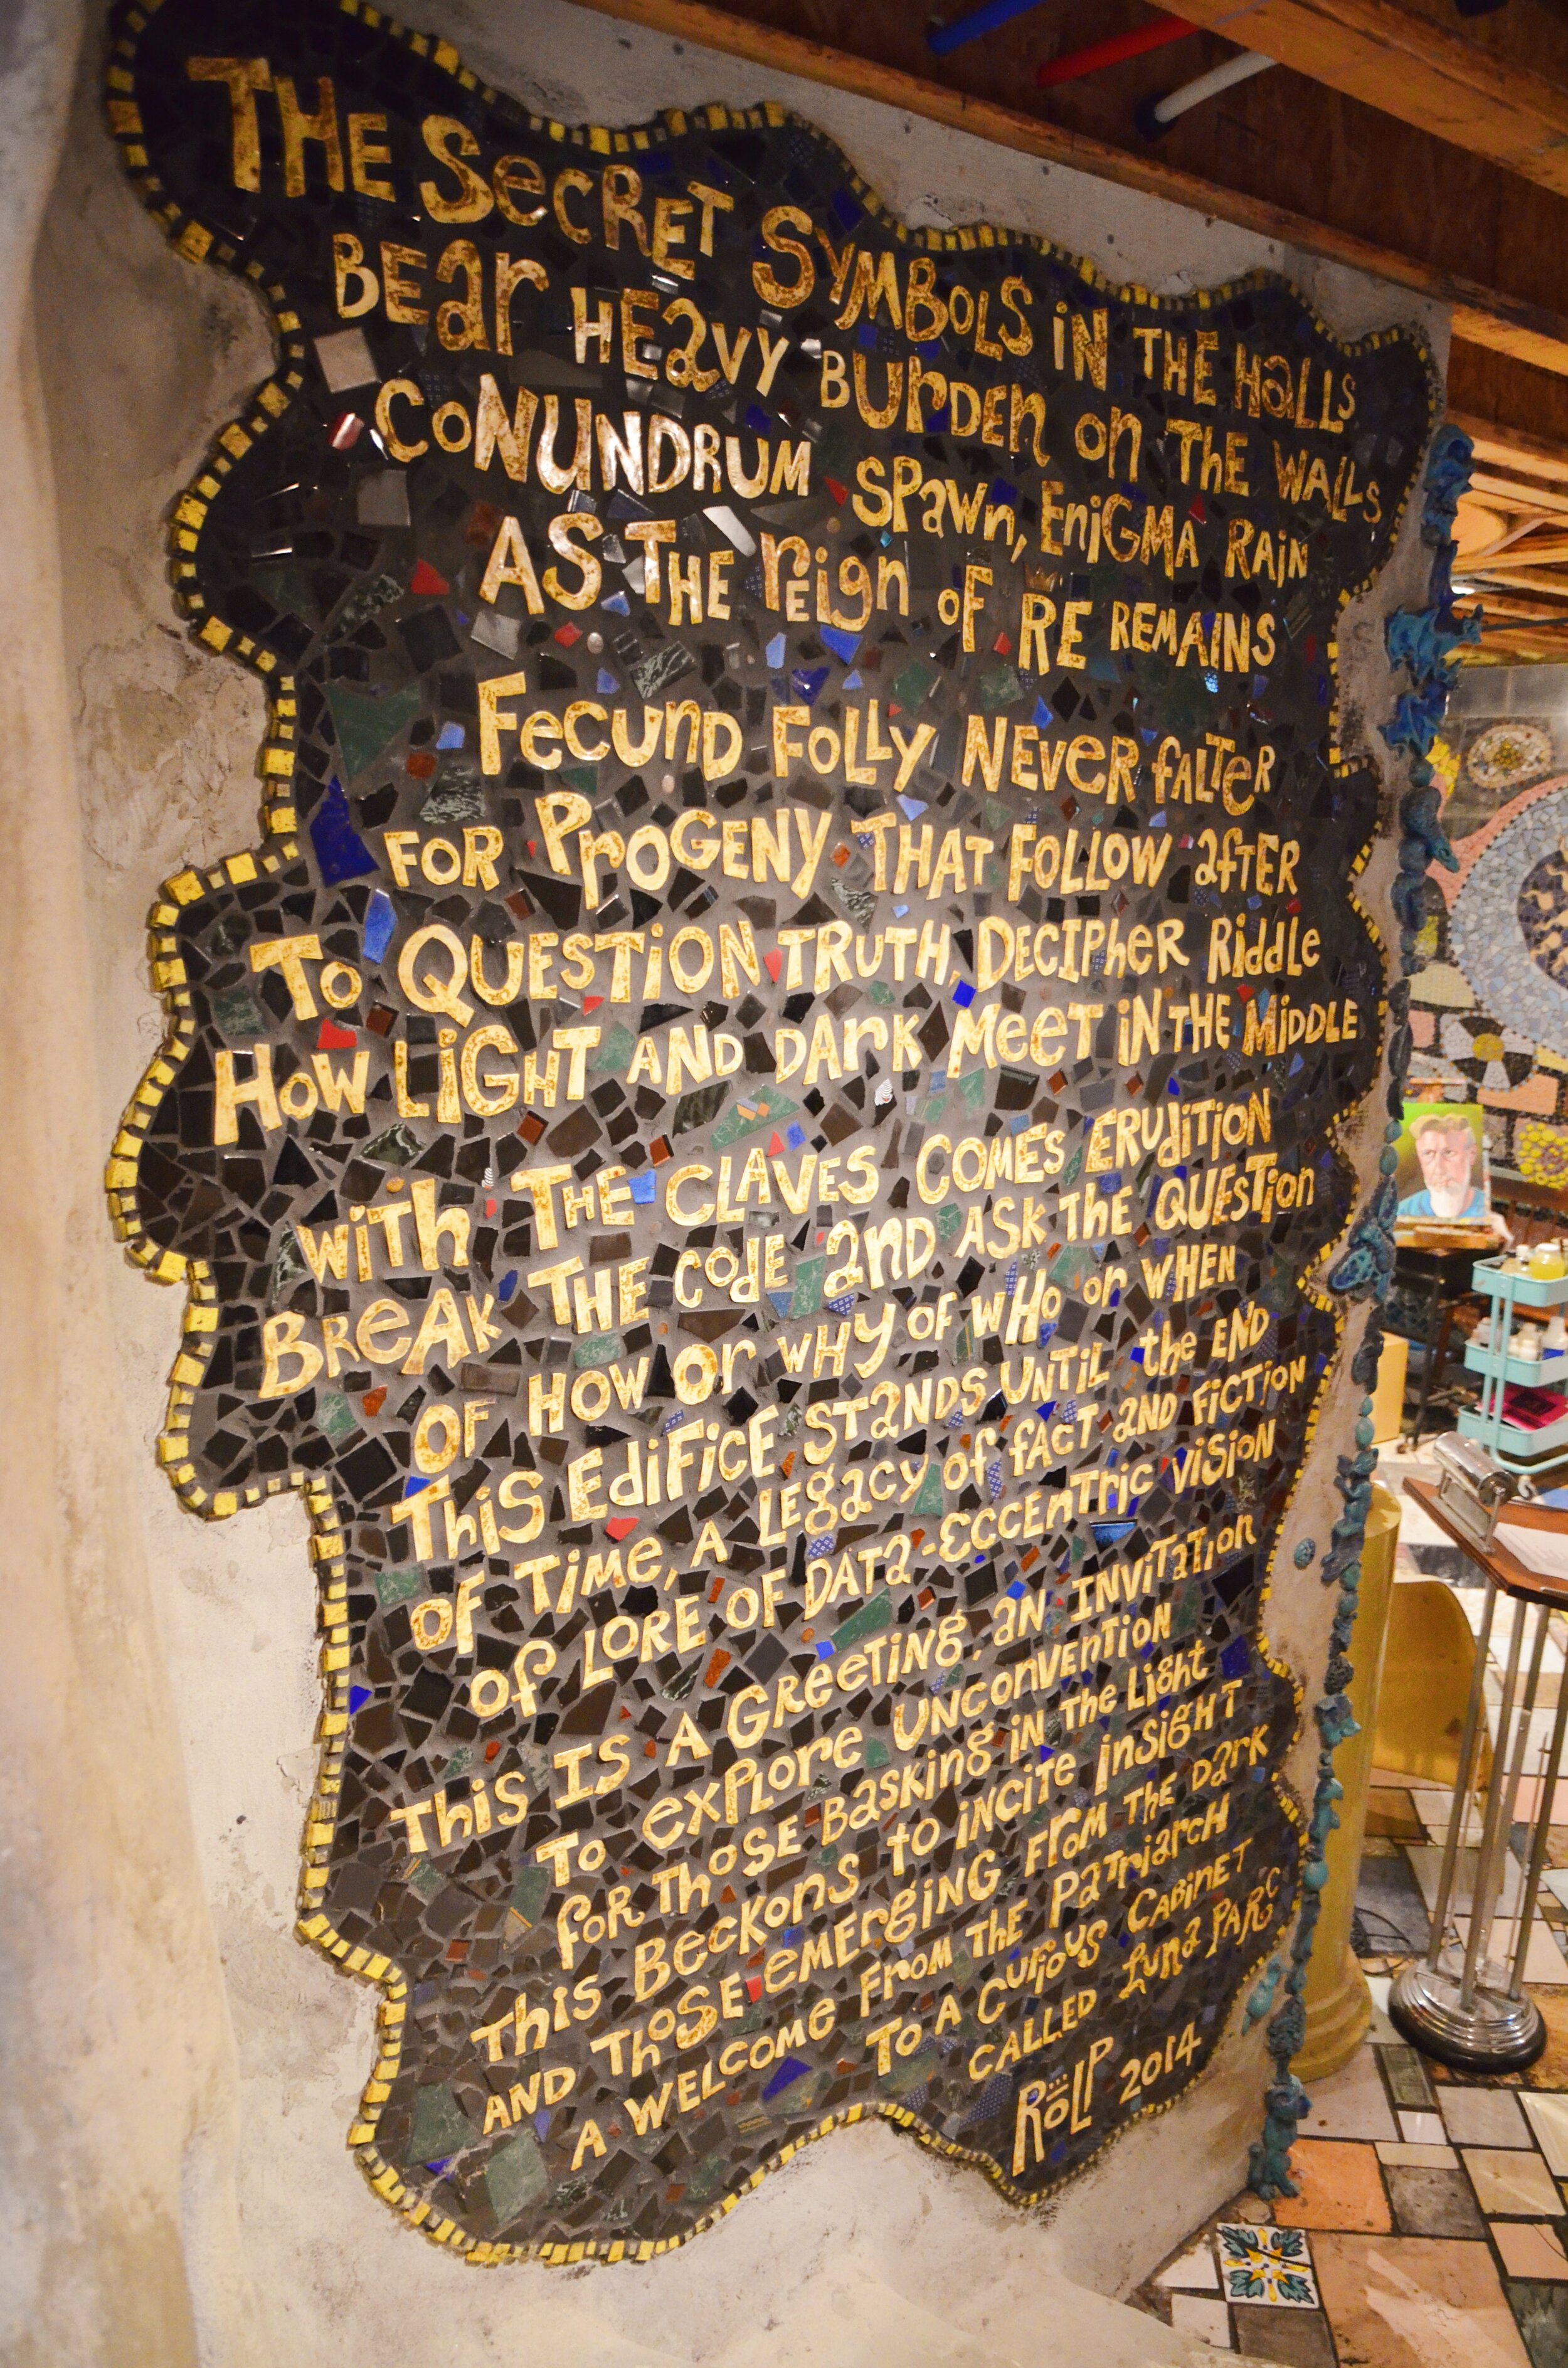 THE SECRET SYMBOLS IN THE HALLS
BEAR HEAVY BURDEN ON THE WALLS
CONUNDRUM SPAWN, ENIGMA RAIN
AS THE REIGN OF RE REMAINS
FECUND FOLLY NEVER FALTER
FOR PROGENY THAT FOLLOW AFTER
TO QUESTION TRUTH, DECIPHER RIDDLE
HOW LIGHT AND DARK MEET IN THE MIDDLE
WITH THE CLAVES COMES ERUDITION
BREAK THE CODE AND ASK THE QUESTION
OF HOW OR WHY OF WHO OR WHEN
THIS EDIFICE STANDS UNTIL THE END
OF TIME, A LEGACY OF FACT AND FICTION
OF LORE OF DATA-ECCENTRIC VISION
THIS IS A GREETING, AN INVITATION
TO EXPLORE UNCONVENTION
FOR THOSE BASKING IN THE LIGHT
THIS BECKONS TO INCITE INSIGHT
AND THOSE EMERGING FROM THE DARK
A WELCOME FROM THE PATRIARCH
TO A CURIOUS CABINET
CALLED LUNA PARC
RÖLP 2014